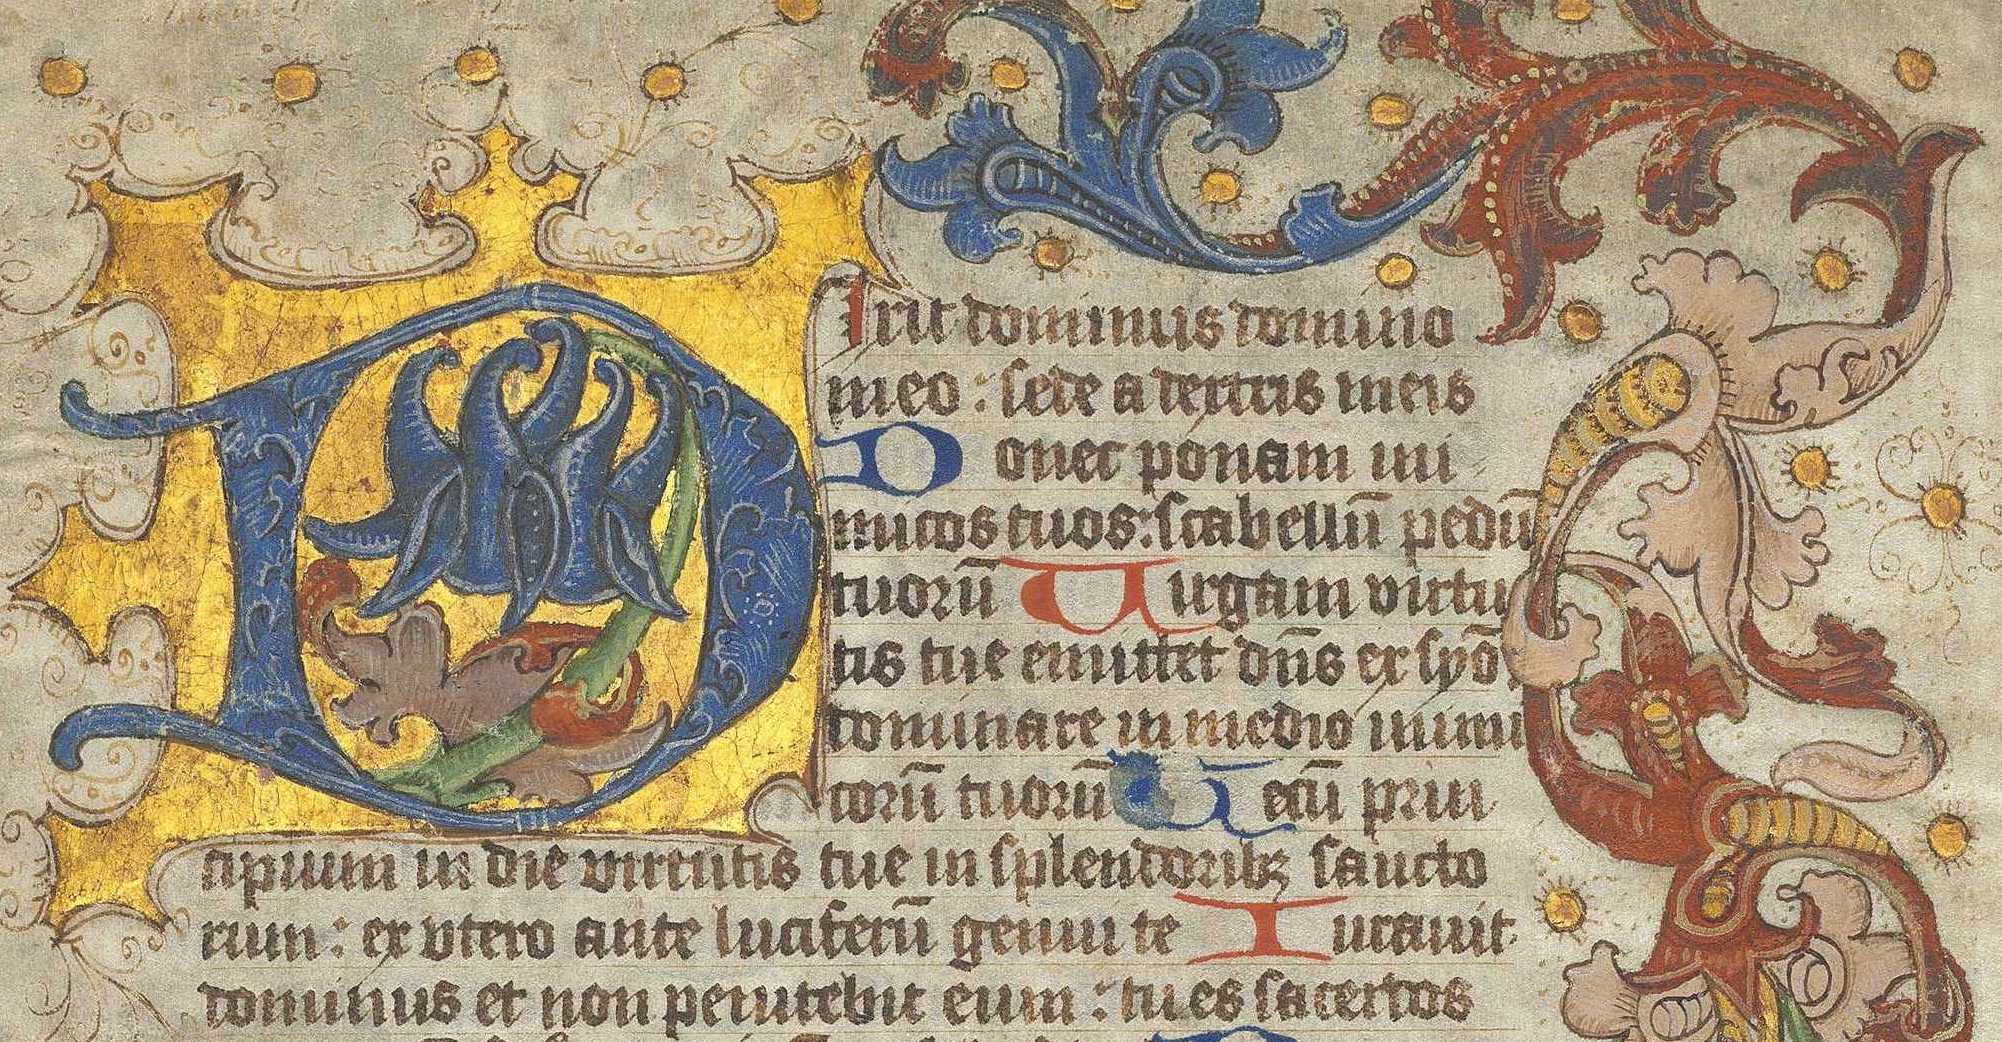 Dixit dominus domino
meo : sede a dextris meis
Donec ponam ini
micos tuos : scabellū pedū
tuorū Uirgam virtu
tis tue emittet dn̄s ex syō
dominare in medio inimi
corū tuorū Tecū prin
cipium in die virtutis tue in splendoribꝫ sancto
rum : ex vtero ante luciferū genui te Iurauit
dominus et non penitebit eum : tu es sacerdos